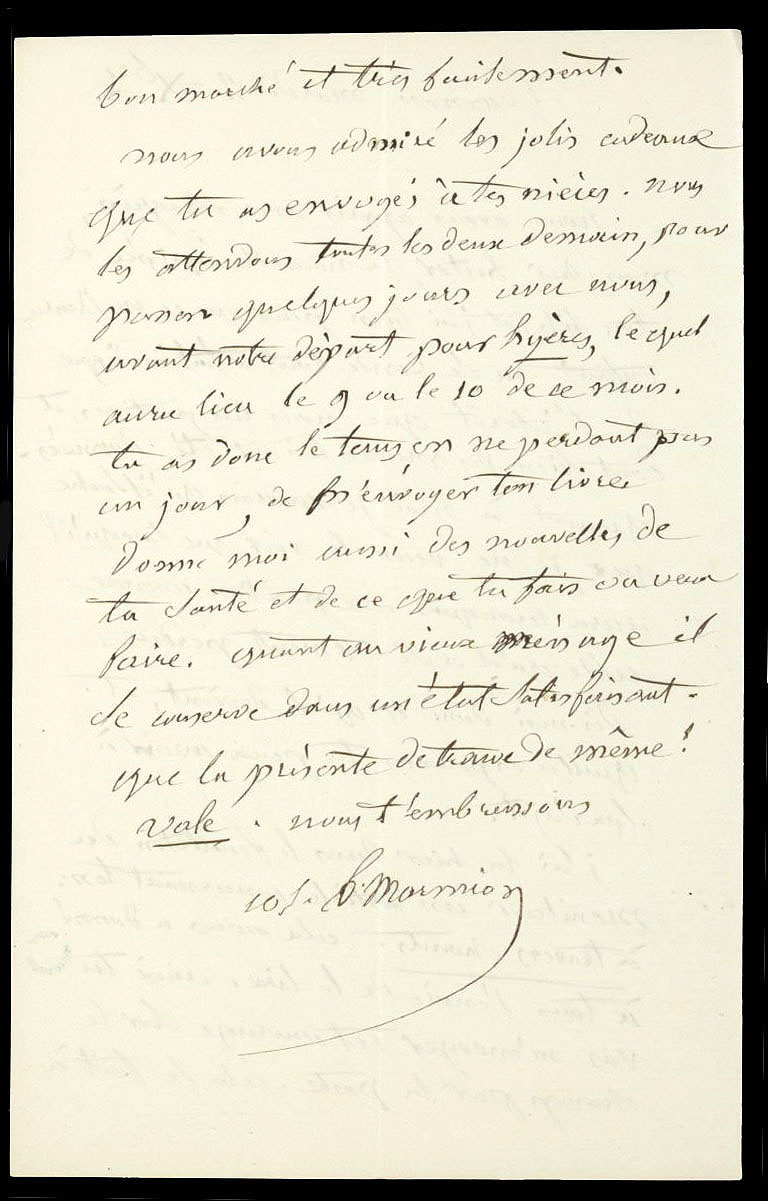 bon marché et très facilement.
nous avons admiré les jolis cadeaux
que tu as envoyés à tes nièces. nous
les attendons toutes les deux demain, pour
passer quelques jours avec nous,
avant notre départ pour hyères, le quel
aura lieu le 9 ou le 10 de ce mois.
tu as donc le tems en ne perdant pas
un jour, de m'envoyer ton livre
donne moi aussi des nouvelles de
ta santé et de ce que tu fais ou veux
faire. quant au vieux ménage il
se conserve dans un état satisfaisant.
que la présente te trouve de même!
vale. nous t'embrassons
Marmion